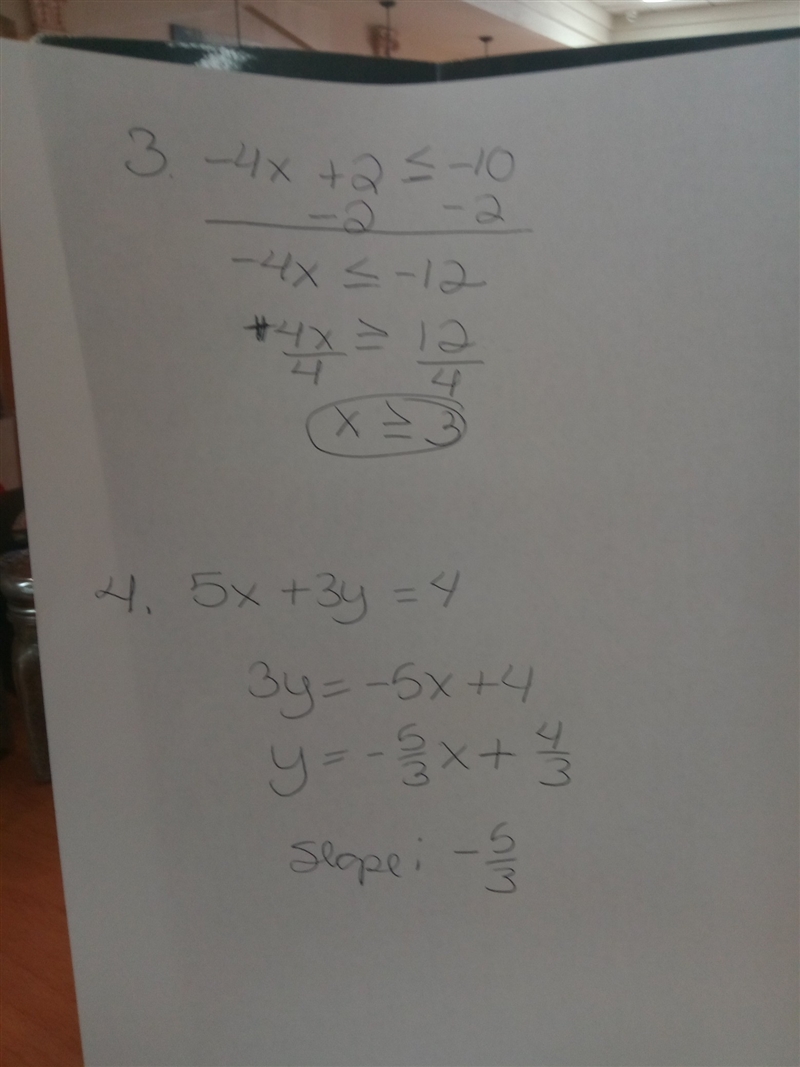 3. -4x +2 ≤ -10
-2 -2
-4x ≤ -12
4x ≥ 12
4 4
x ≥ 3
4. 5x +3y = 4
3y = -5x +4
y = -5/3 x + 4/3
slope: -5/3